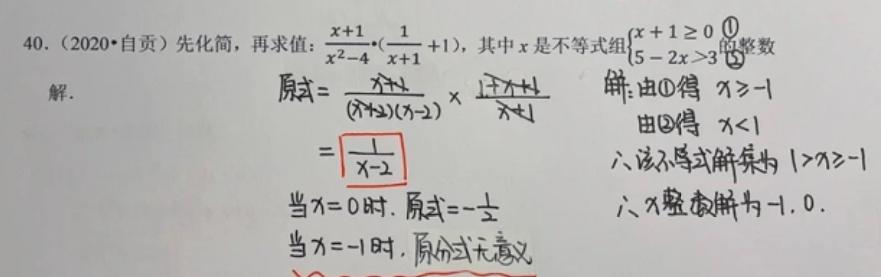 40.（2020•自贡）先化简，再求值：\frac{x+1}{x^2-4}•(\frac{1}{x+1}+1)，其中 x 是不等式组{x+1≥0 ① 5-2x>3 ② 的整数
解.
原式= \frac{x+1}{(x+2)(x-2)} × \frac{1+x+1}{x+1}
= \frac{1}{x-2}
当x=0时. 原式=-\frac{1}{2}
当x=-1时. 原分式无意义
解:由①得 x≥-1
由②得 x<1
∴该不等式解集为 1>x≥-1
∴x整数解为-1,0.